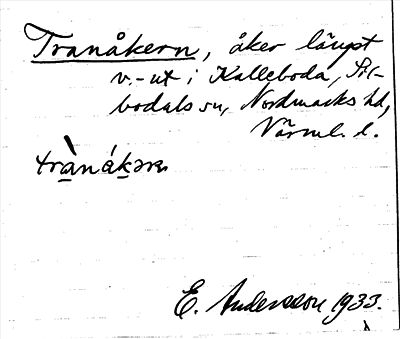 Tranåkern, åker längst
v.-ut i Kalleboda, Sil-
bodals sn, Nordmarks hd,
Värml. l.
trànákəre
E. Andersson 1933.